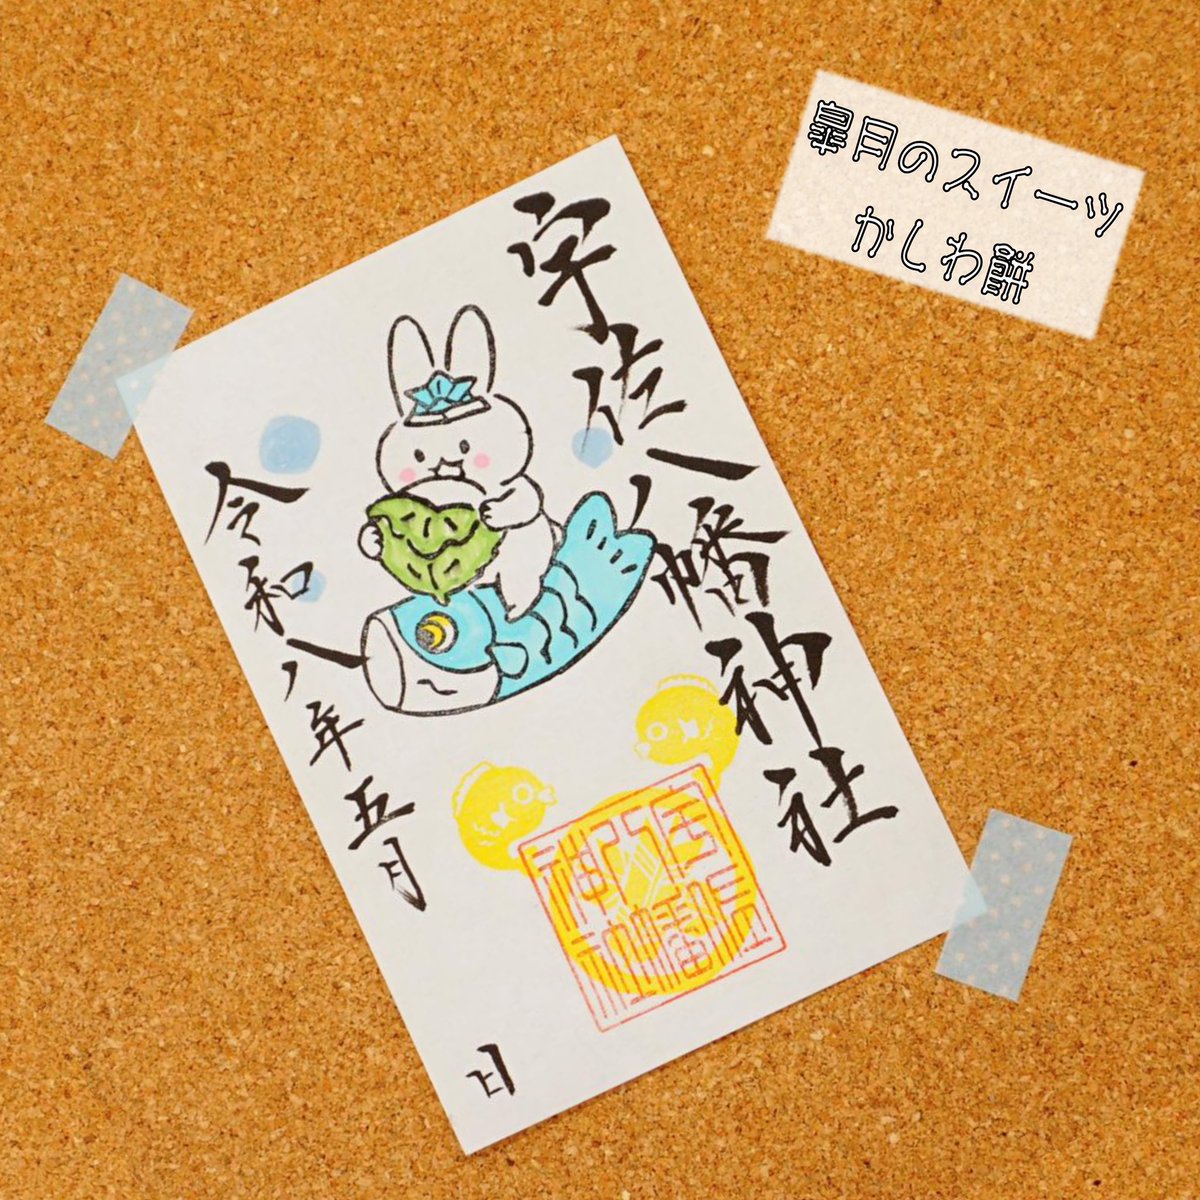 皐月のスイーツ
かしわ餅
宇佐八幡神社
令和八年五月
日